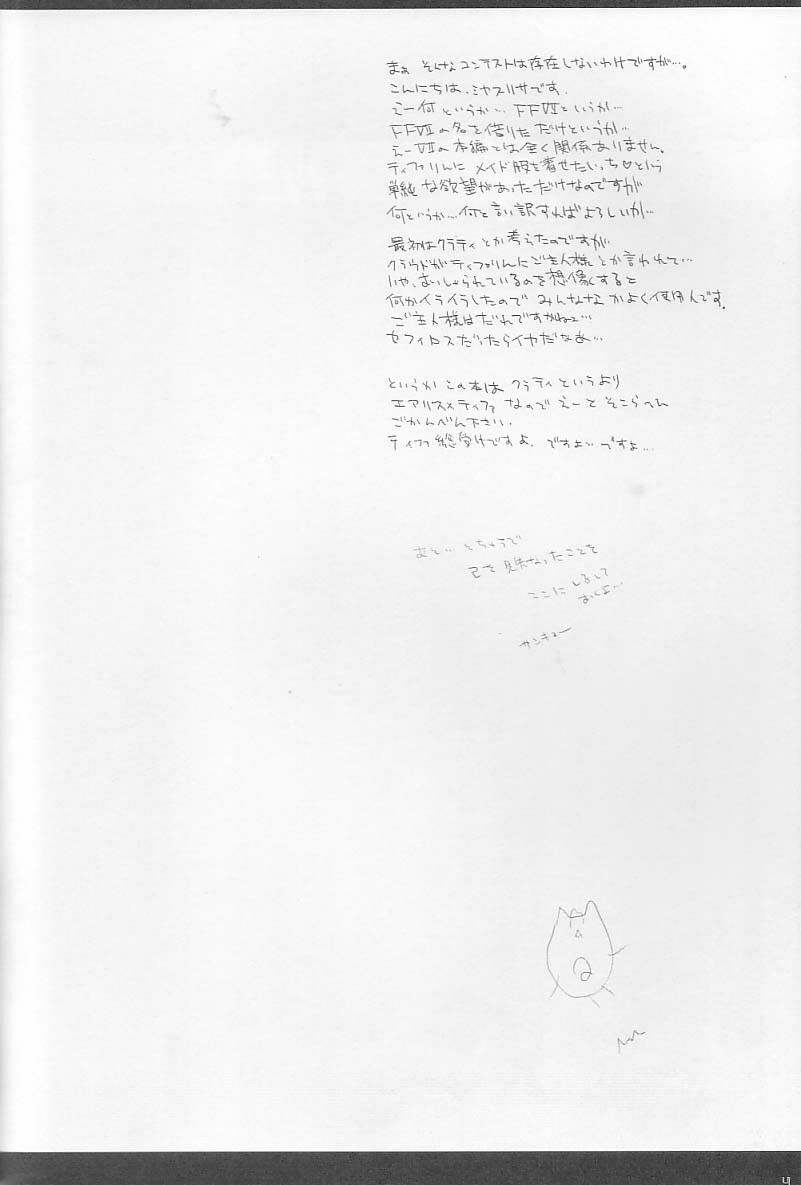 まぁ そんなコンテストは存在しないわけですが…。
こんにちは、ミヤスリサです.
えー何というか… FFⅦというか…
FFⅦの名を借りただけというか…
えーⅦの本編とは全く関係ありません。
ティファりんに メイド服を着せたいっち♡という
単純な欲望があっただけなのですが
何というか…何と言い訳すればよろしいか…
最初はクラティとか考えたのですが
クラウドがティファりんにご主人様とか言われて…
いや、おっしゃられているのを想像すると
何かイライラしたので みんななかよく使用人です.
ご主人様はだれですかねェ…
セフィロスだったらイヤだなあ…
というか この本は クラティというより
エアリス×ティファ なので えーと そこらへん
ごかんべん下さい.
ティファ総受けですよ. ですよ… ですよ…
あと… とちゅうで
己を見失なったことを
ここに しるして
おくよ…
サンキュー